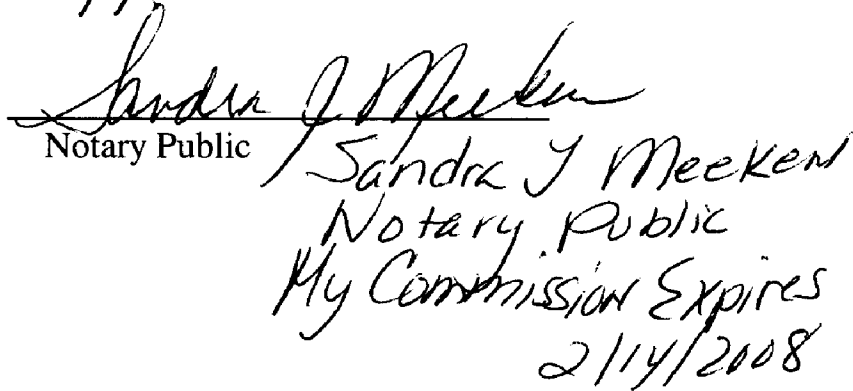 Sandra J Meeken
Notary Public
Sandra J Meeken
Notary Public
My Commission Expires
2/14/2008